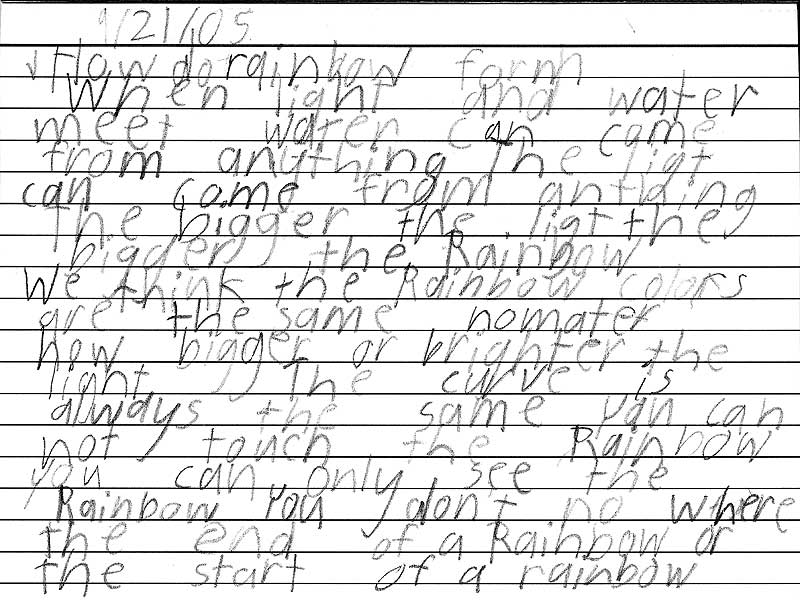 9/21/05
How do rainbow form
When light and water
meet water can came
from anything The ligt
can come from anthing
The bigger the ligt the
bigger the Rainbow
We think the Rainbow colors
are the same nomater
how bigger or brighter the
light The curve is
always the same yan can
not touch the Rainbow
you can only see the
Rainbow you don't no where
the end of a Rainbow or
the start of a rainbow